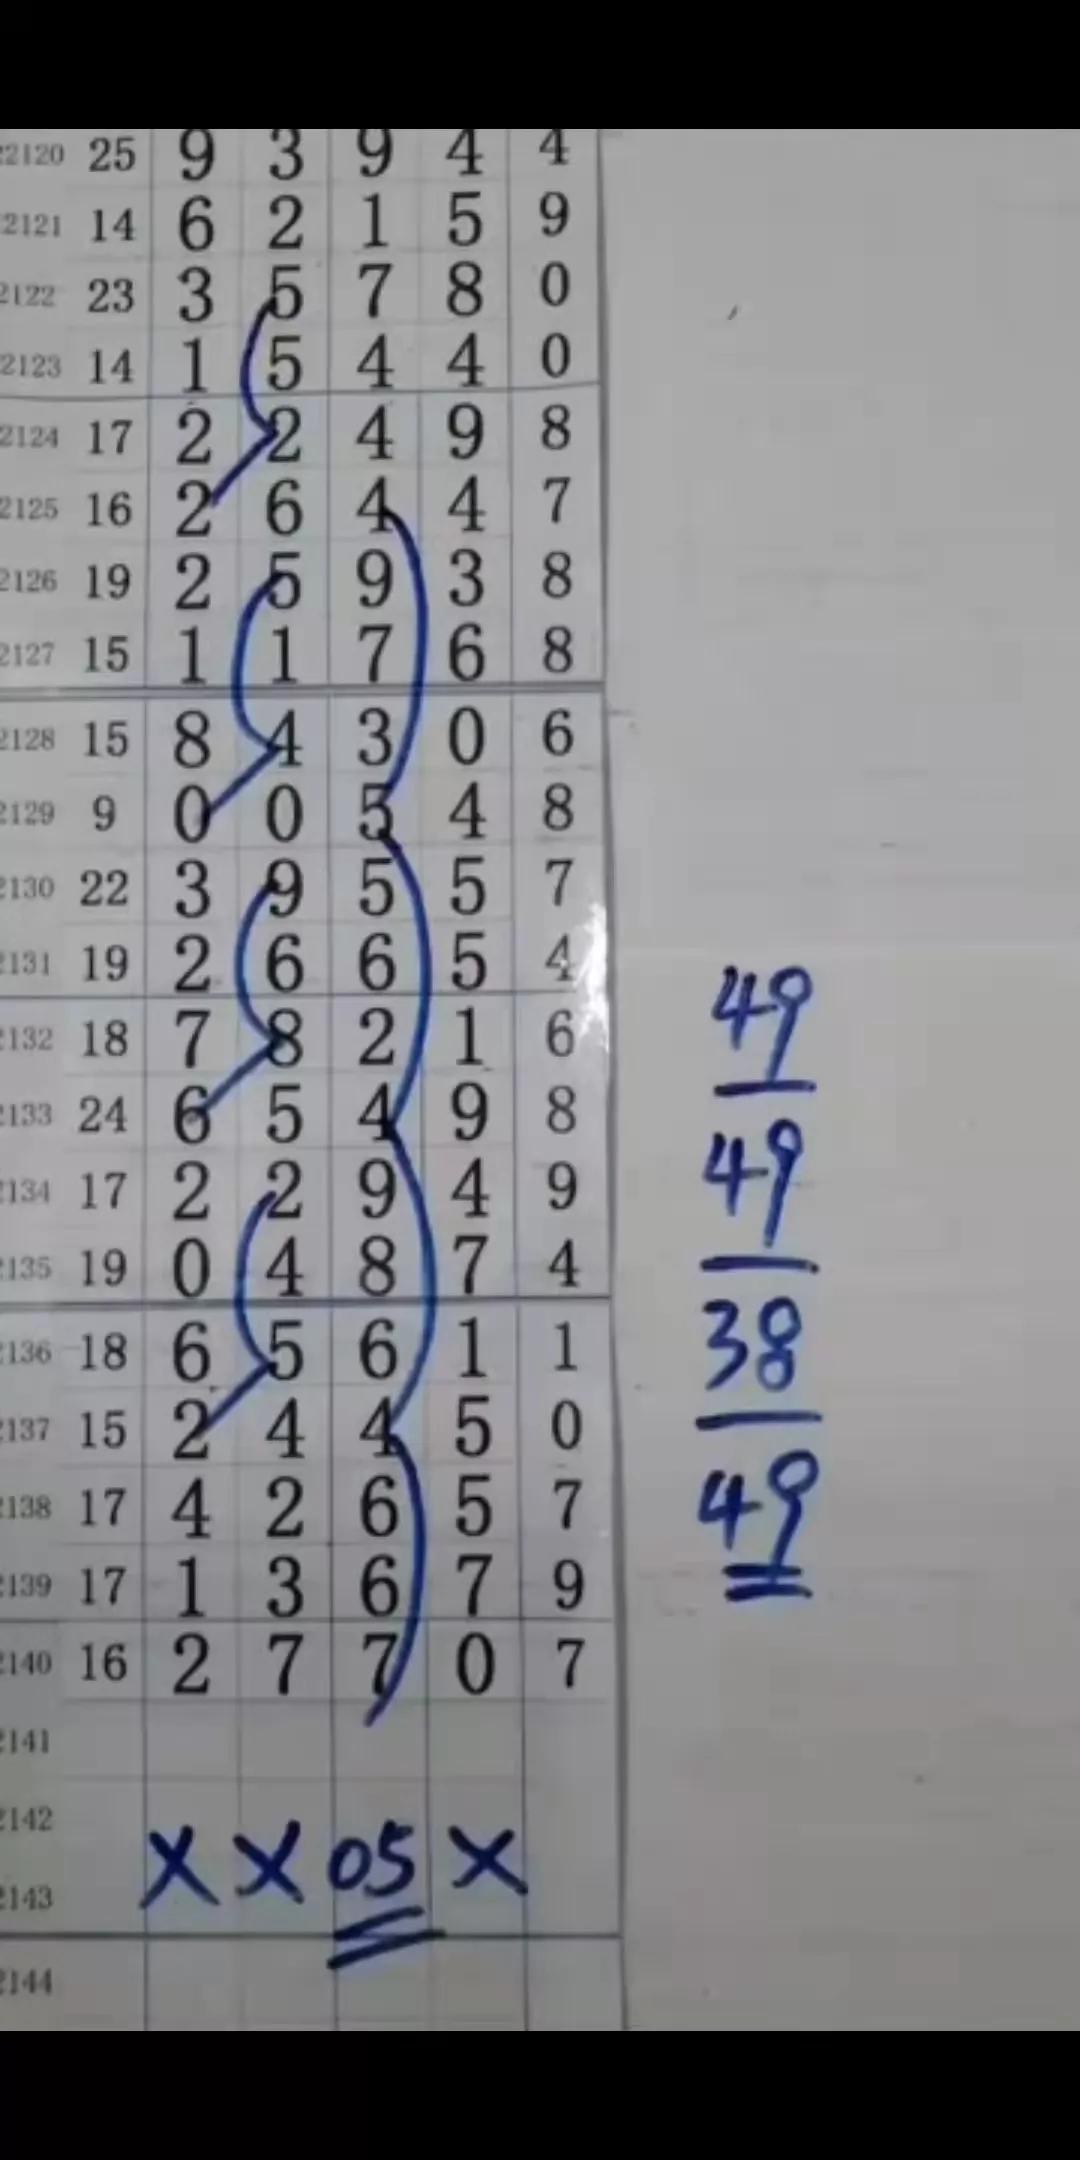 22120 25 9 3 9 4 4
2121 14 6 2 1 5 9
2122 23 3 5 7 8 0
2123 14 1 5 4 4 0
2124 17 2 2 4 9 8
2125 16 2 6 4 4 7
2126 19 2 5 9 3 8
2127 15 1 1 7 6 8
2128 15 8 4 3 0 6
2129 9 0 0 5 4 8
2130 22 3 9 5 5 7
2131 19 2 6 6 5 4
2132 18 7 8 2 1 6
2133 24 6 5 4 9 8
2134 17 2 2 9 4 9
2135 19 0 4 8 7 4
2136 18 6 5 6 1 1
2137 15 2 4 4 5 0
2138 17 4 2 6 5 7
2139 17 1 3 6 7 9
2140 16 2 7 7 0 7
2141
2142
X X 05 X
2143
2144
49
49
38
49